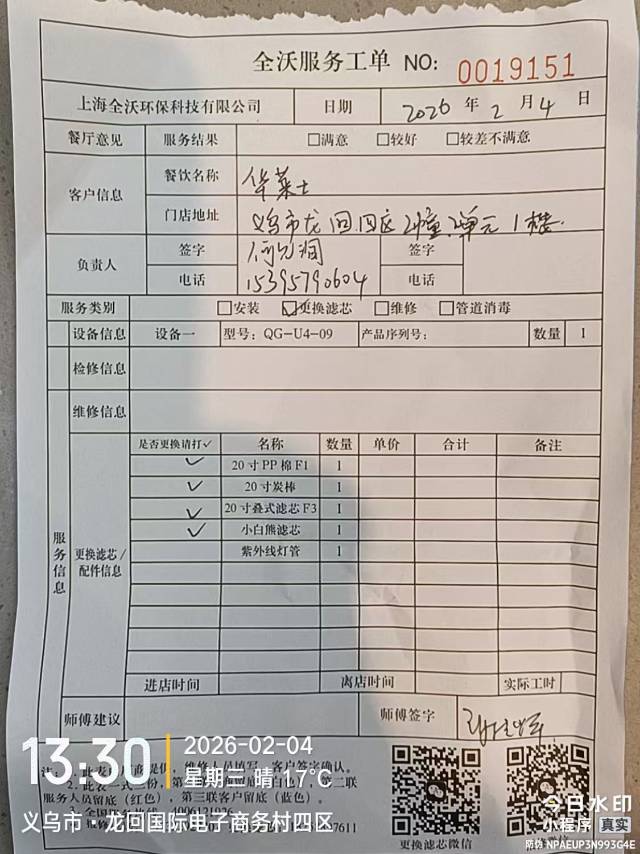 全沃服务工单 NO: 0019151
上海全沃环保科技有限公司 日期 2026 年 2 月 4 日
餐厅意见 服务结果 □满意 □较好 □较差不满意
客户信息 餐饮名称 华莱士
门店地址 义乌市龙回四区 2幢 2单元 1楼.
负责人 签字 签字
电话 15395790604 电话
服务类别 □安装 ☑更换滤芯 □维修 □管道消毒
设备信息 设备一 型号: QG-U4-09 产品序列号: 数量 1
检修信息
维修信息
服务信息
更换滤芯/配件信息
是否更换请打✓ 名称 数量 单价 合计 备注
✓ 20寸PP棉F1 1
✓ 20寸炭棒 1
✓ 20寸叠式滤芯F3 1
✓ 小白熊滤芯 1
紫外线灯管 1
进店时间 离店时间 实际工时
师傅建议 师傅签字
13:30 2026-02-04
星期三 晴 17℃
义乌市·龙回国际电子商务村四区
客户签字确认。
第二联
服务人员留底（红色），第三联客户留底（蓝色）。
4006121976
7611
更换滤芯微信
今日水印
小程序 真实
防伪 NPAEUP3N993G4E